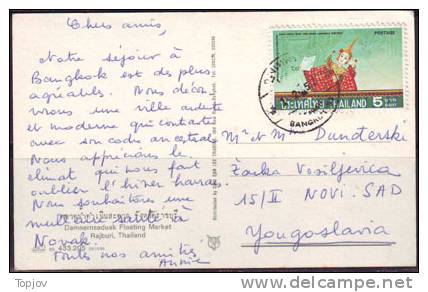 Chers amis,
Notre séjour à
Bangkok est des plus
agréables. Nous décou
vrons une ville ardente
et moderne qui contraste
avec son cadre ancestral
Nous apprécions le
climat qui nous fait
oublier l'hiver
Nous souhaitons une
meilleure santé à
Novak.
Toutes nos amitiés
Annie
Damnernsaduak Floating Market
Rajburi, Thailand
433.205
POSTAGE
ประเทศไทย THAILAND 5 บาท
BAHT
BANGKOK
Mr et Mme Dunđerski
Žarka Vasiljevića
15/II NOVI-SAD
Yougoslavia
© Topjov
delcampe.net